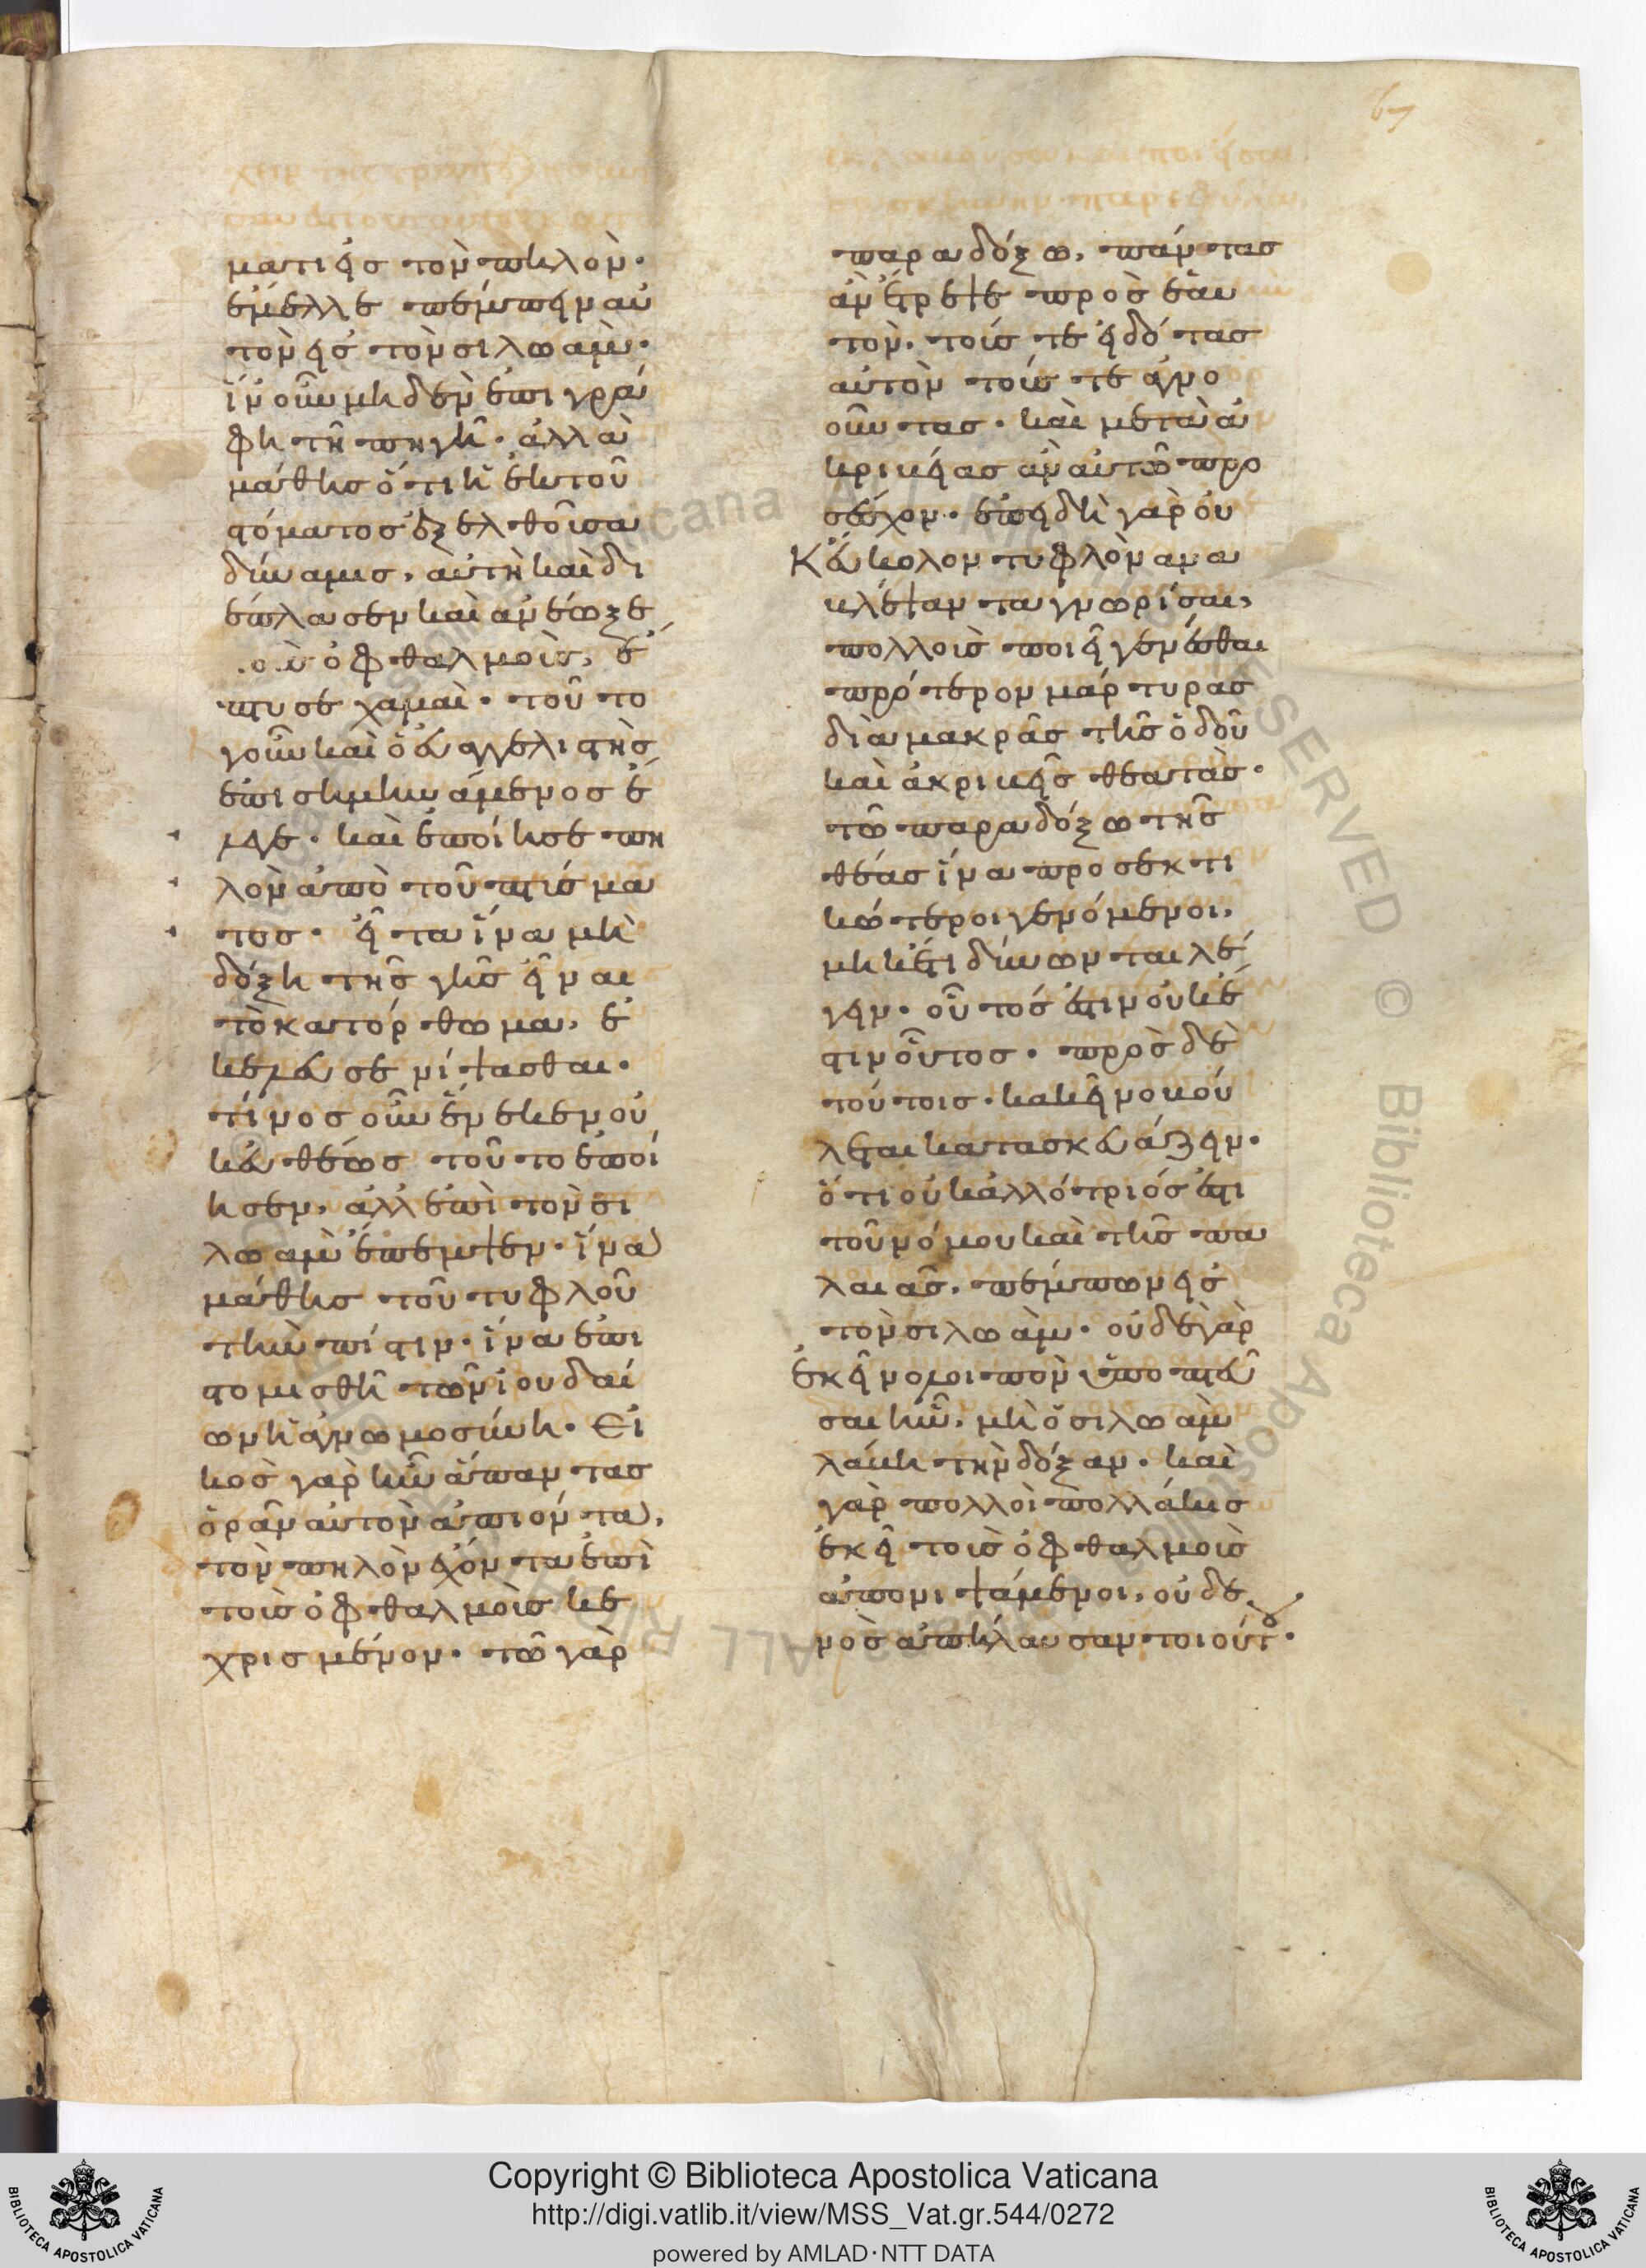 67
ματιεὶς τὸν πηλὸν·
ἐμελλε πέμπειν αὐ
τὸν εἰς τὸν σιλωὰμ·
ἵν οὖν μηδὲν ἐπιγρά
φη τῆ πηγῆ· ἀλλὰ
μάθης ὅτι ἡ ἐκ τοῦ
στόματος ἐξελθοῦσα
δύναμις, αὐτὴ καὶ δι
έπλασεν καὶ ἀνέωξε
τοὺς ὀφθαλμοὺς, ἔ
πτυσε χαμαὶ· τοῦτο
γοῦν καὶ ὁ εὐαγγελιστὴς
ἐπισημηνάμενος ἔ
λεγε· καὶ ἐποίησε πη
λὸν ἀπὸ τοῦ πτύσμα
τος· εἶτα ἵνα μὴ
δόξη τῆς γῆς εἶναι
τὸ κατόρθωμα, ἐ
κέλευσε νίψασθαι·
τίνος οὖν ἕνεκεν οὐ
κ εὐθέως τοῦτο ἐποί
ησεν, ἀλλ ἐπὶ τὸν σι
λωὰμ ἔπεμψεν· ἵνα
μάθης τοῦ τυφλοῦ
τὴν πίστιν· ἵνα ἐπι
στομισθῆ τῶν ἰουδαί
ων ἡ ἀγνωμοσύνη· Εἰ
κὸς γὰρ ἦν ἅπαντας
ὁρᾶν αὐτὸν ἀπιόντα,
τὸν πηλὸν ἔχοντα ἐπὶ
τοὺς ὀφθαλμοὺς κε
χρισμένον· τῶ γὰρ
παραδόξω, πάντας
ἂν ἐπέστρεψε πρὸς ἑαυ
τὸν, τούς τε εἰδότας
αὐτὸν τούς τε ἀγνο
οῦντας· καὶ μετὰ ἀ
κριβείας ἂν αὐτῶ προ
σεῖχον· ἐπειδὴ γὰρ οὐ
κ εὔκολον τυφλὸν ἀνα
βλέψαντα γνωρίσαι,
πολλοὺς ποιεῖ γενέσθαι
πρότερον μάρτυρας
διὰ μακρᾶς τῆς ὁδοῦ
καὶ ἀκριβεῖς θεατὰς·
τῶ παραδόξω τῆς
θέας ἵνα προσεκτι
κώτεροι γενόμενοι,
μηκέτι δύνωνται λέ
γειν· οὗτός ἐστιν οὐκ ἔ
στιν οὗτος· πρὸς δὲ
τούτοις· κακεῖνο βού
λεται κατασκευάζειν·
ὅτι οὐκ ἀλλότριός ἐστι
τοῦ νόμου καὶ τῆς πα
λαιᾶς, πέμπων εἰς
τὸν σιλωὰμ· οὐδὲ γὰρ
ἐκεῖνο λοιπὸν ὑποπτεῦ
σαι ἦν, μὴ ὁ σιλωὰμ
λάβη τὴν δόξαν· καὶ
γὰρ πολλοὶ πολλάκις
ἐκεῖ τοὺς ὀφθαλμοὺς
ἀπονιψάμενοι, οὐδε
νὸς ἀπήλαυσαν τοιούτου·
Copyright © Biblioteca Apostolica Vaticana
http://digi.vatlib.it/view/MSS_Vat.gr.544/0272
powered by AMLAD·NTT DATA
BIBLIOTECA APOSTOLICA VATICANA
BIBLIOTECA APOSTOLICA VATICANA